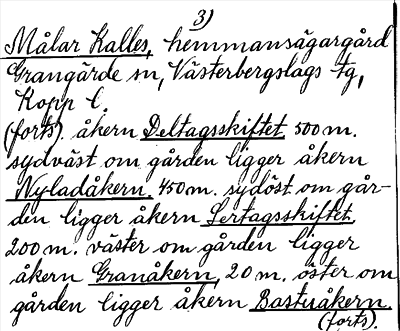 3)
Målar Kalles, hemmansägargård
Grangärde sn, Västerbergslags tg,
Kopp l.
(forts). åkern Deltagsskiftet 500 m.
sydväst om gården ligger åkern
Nyladåkern. 450 m. sydöst om går-
den ligger åkern Sertagsskiftet.
200 m. väster om gården ligger
åkern Granåkern, 20 m. öster om
gården ligger åkern Bastuåkern.
(forts).